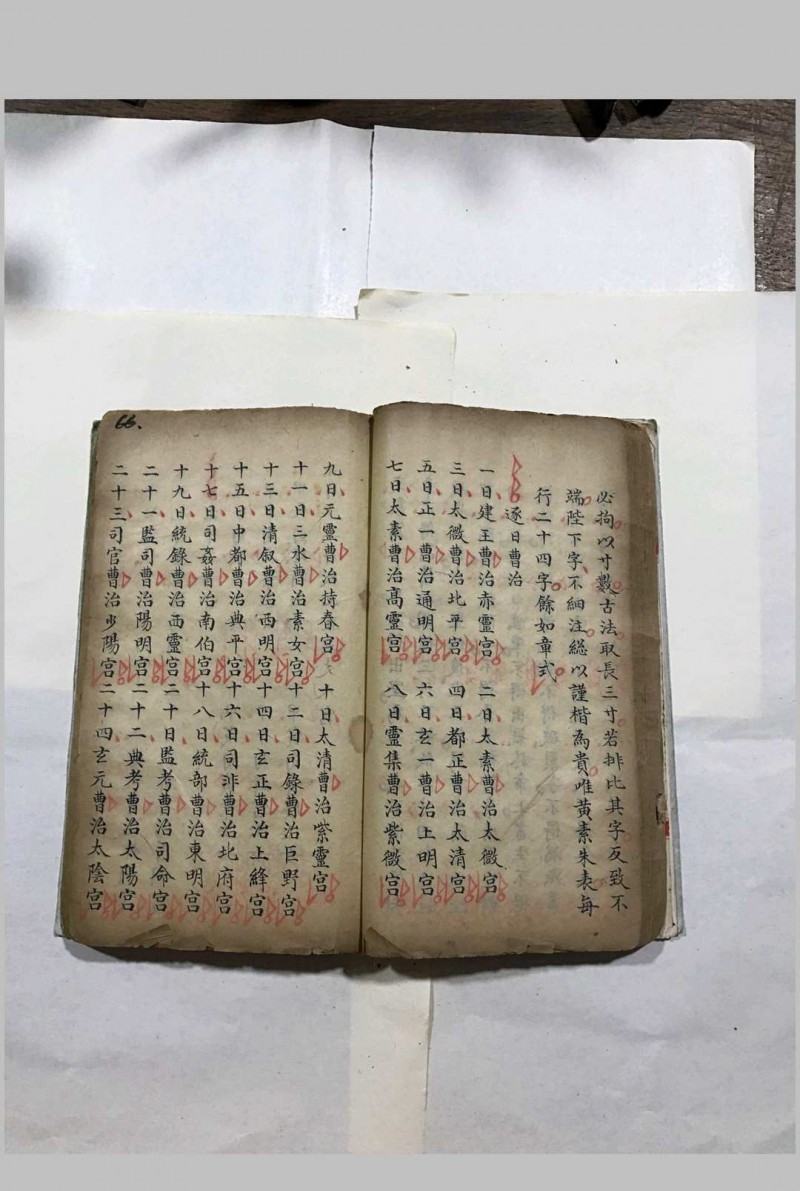 必拘以寸數古法取長三寸若排比其字反致不
端陛下字不細注總以謹楷為貴唯黄素朱表每
行二十四字餘如章式
逐日曹治
一日建王曹治赤靈宫 二日太素曹治太微宫
三日太微曹治北平宫 四日都正曹治太清宫
五日正一曹治通明宫 六日玄一曹治上明宫
七日太素曹治高靈宫 八日靈集曹治紫微宫
66.
九日元靈曹治持春宫 十日太清曹治紫靈宫
十一日三水曹治素女宫 十二日司錄曹治巨野宫
十三日清叙曹治西明宫 十四日玄正曹治上絳宫
十五日中都曹治典平宫 十六日司非曹治北府宫
十七日司姦曹治南伯宫 十八日統部曹治東明宫
十九日統錄曹治西靈宫 二十日監考曹治司命宫
二十一監司曹治陽明宫 二十二典考曹治太陽宫
二十三司官曹治少陽宫 二十四玄元曹治太陰宫